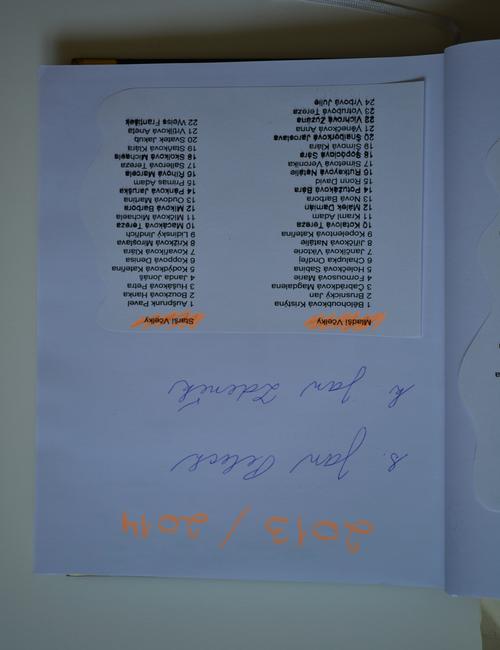 2013 / 2014
s. Jan Pelech
k. Jan Zdeněk
Mladší Včelky
1 Bělohoubková Kristýna
2 Brusnický Jan
3 Cabrádková Magdalena
4 Fornousová Marie
5 Holečková Sabina
6 Chalupka Ondřej
7 Jančíková Viktorie
8 Jiříčková Natálie
9 Kopelentová Klára
10 Kotalová Tereza
11 Kraml Adam
12 Málek Damián
13 Nová Barbora
14 Pouzaková Bára
15 Ronn David
16 Rutkayová Natálie
17 Simetová Veronika
18 Sopčoclová Sára
19 Šímová Klára
20 Šnaiberková Jaroslava
21 Vaněčková Anna
22 Vichrová Zuzana
23 Votrubová Tereza
24 Vrbová Julie
Starší Včelky
1 Aušprunk Pavel
2 Bouzková Hanka
3 Hušáková Petra
4 Janda Jonáš
5 Kodýdková Kateřina
6 Koppová Denisa
7 Kovaříková Klára
8 Křížková Miroslava
9 Lidinský Jindřich
10 Macáková Tereza
11 Mičková Michaela
12 Miková Barbora
13 Oudová Martina
14 Pánková Januška
15 Primas Adam
16 Říhová Marcela
17 Sailerová Tereza
18 Školková Michaela
19 Staňková Klára
20 Svatek Jakub
21 Vrtílková Aneta
22 Weiss František